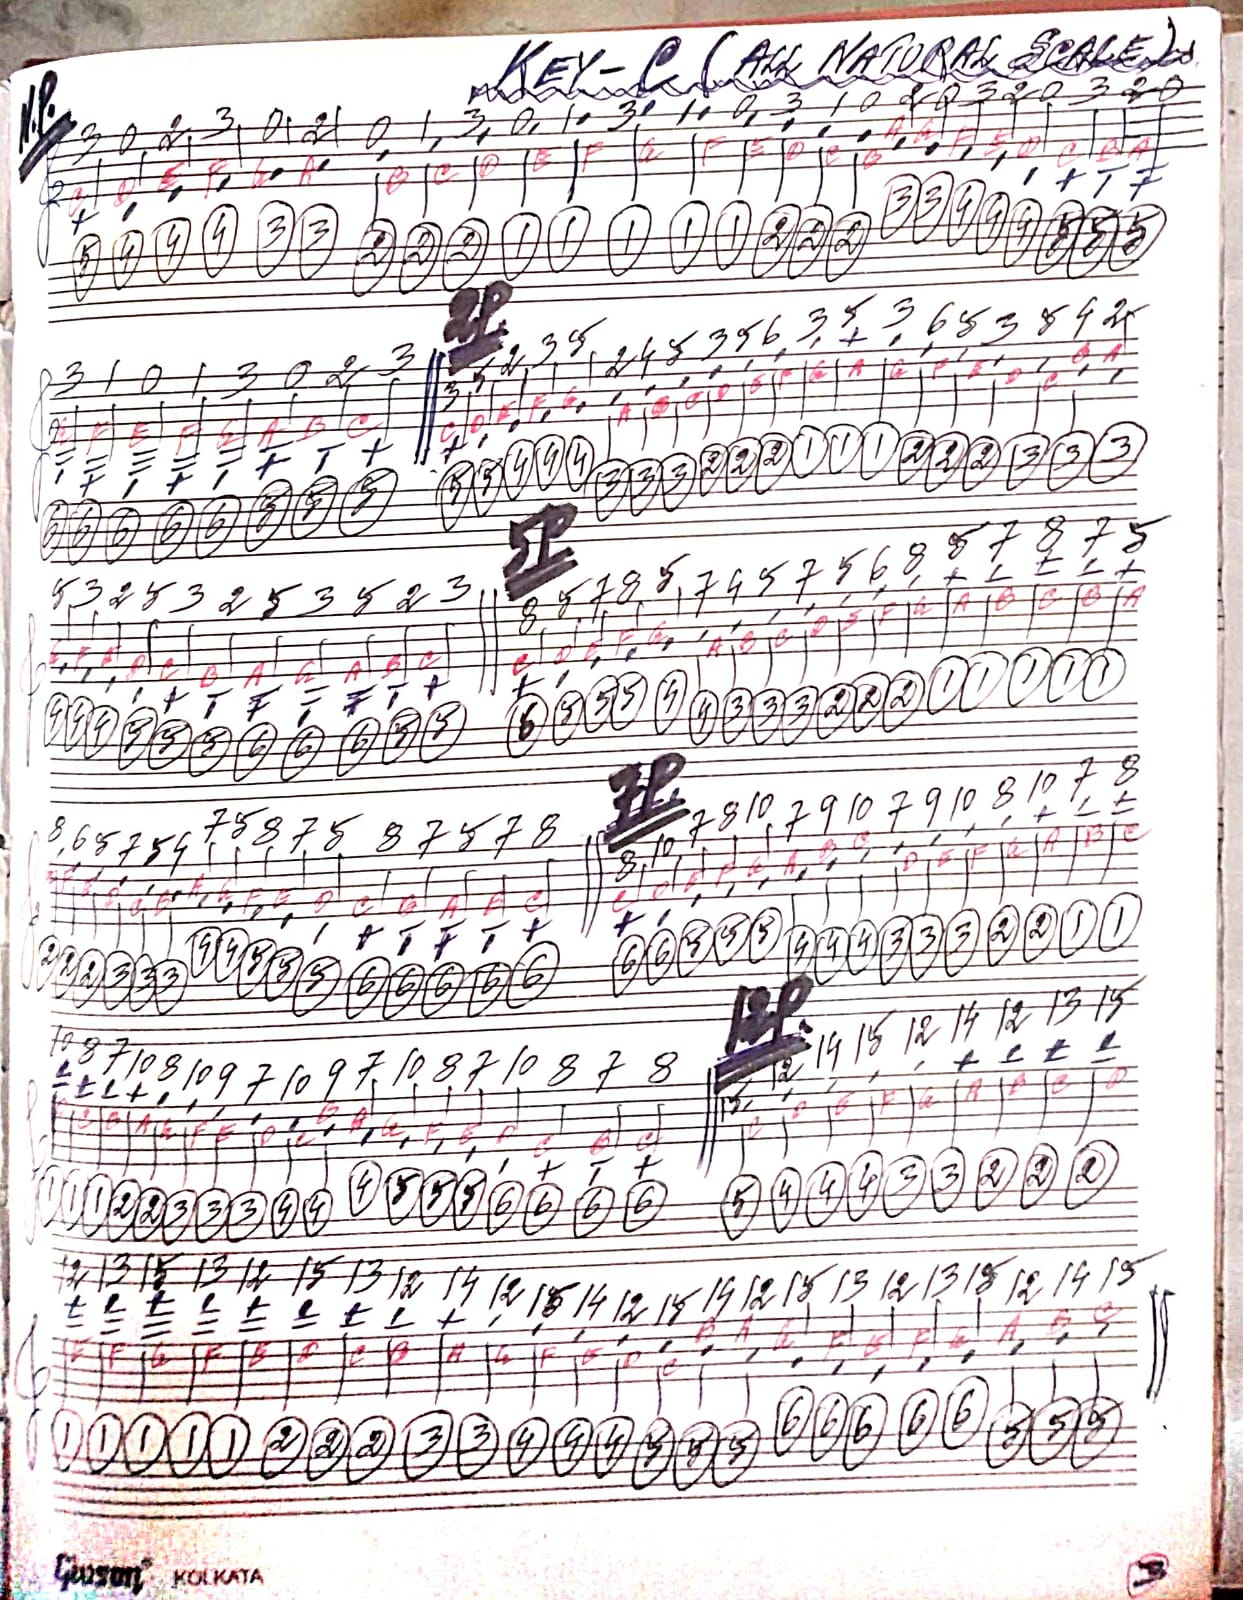 KEY-C (ALL NATURAL SCALE)
N.P.
3 0 2 3 0 2 0 1 3 0 1 3 1 0 3 1 0 2 0 3 2 0 3 2 0
C D E F G A B C D E F G F E D C B A G F E D C B A
5 4 4 4 3 3 2 2 2 1 1 1 1 1 2 2 2 3 3 4 4 4 5 5 5
2P.
3 1 0 1 3 0 2 3
G F E F G A B C
6 6 6 6 6 5 5 5
3 5 2 3 5 2 4 5 3 5 6 3 5 3 6 5 3 5 4 2
C D E F G A B C D E F G A G F E D C B A
5 5 4 4 4 3 3 3 2 2 2 1 1 1 2 2 2 3 3 3
5P
5 3 2 5 3 2 5 3 5 2 3
G F E D C B A G A B C
4 4 4 5 5 5 6 6 6 5 5
8 5 7 8 5 7 4 5 7 5 6 8 5 7 8 7 5
C D E F G A B C D E F G A B C B A
6 5 5 5 4 4 3 3 3 2 2 2 1 1 1 1 1
7P.
8 6 5 7 5 4 7 5 8 7 5 8 7 5 7 8
G F E D C B A G F E D C B A B C
2 2 2 3 3 3 4 4 5 5 5 6 6 6 6 6
8 10 7 8 10 7 9 10 7 9 10 8 10 7 8
C D E F G A B C D E F G A B C
6 6 5 5 5 4 4 4 3 3 3 2 2 1 1
12P.
10 8 7 10 8 10 9 7 10 9 7 10 8 7 10 8 7 8
D C B A G F E D C B A G F E D C B C
1 1 1 2 2 3 3 3 4 4 4 5 5 5 6 6 6 6
15 12 14 15 12 14 12 13 15
C D E F G A B C D
5 4 4 4 3 3 2 2 2
12 13 15 13 12 15 13 12 14 12 15 14 12 15 14 12 15 13 12 13 15 12 14 15
E F G F E D C B A G F E D C B A G F E F G A B C
1 1 1 1 1 2 2 2 3 3 4 4 4 5 5 5 6 6 6 6 6 5 5 5
Gwson KOLKATA
3